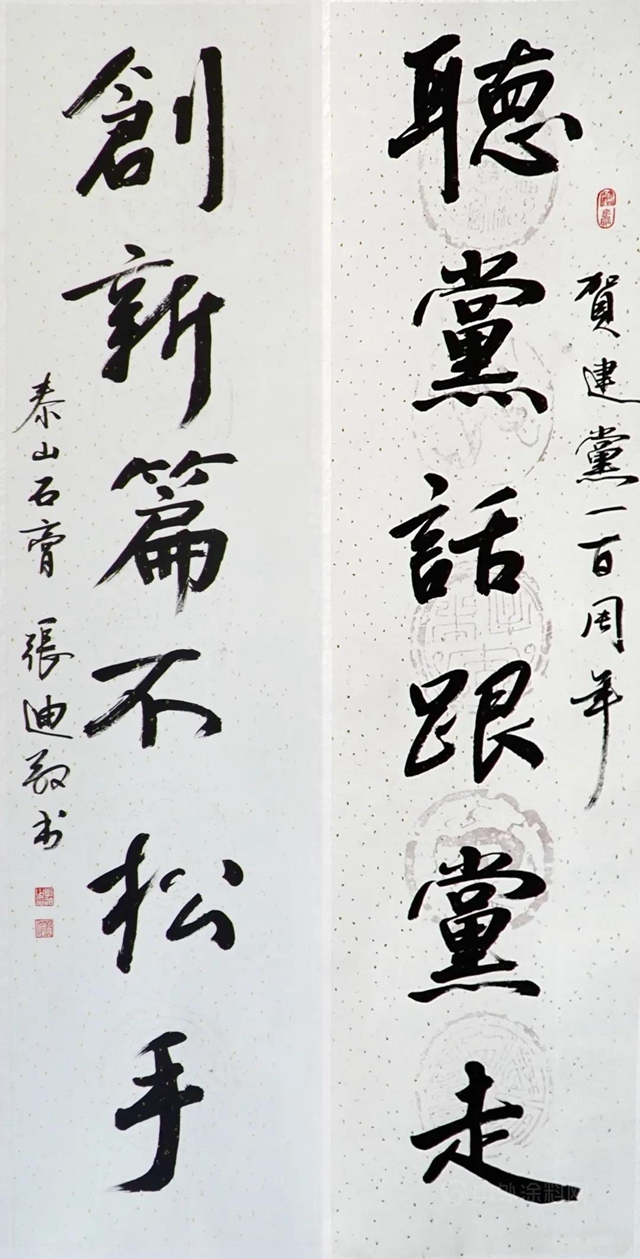 賀建黨一百周年
聽黨話跟黨走
創新篇不松手
泰山石膏 張迪敬书
涂料